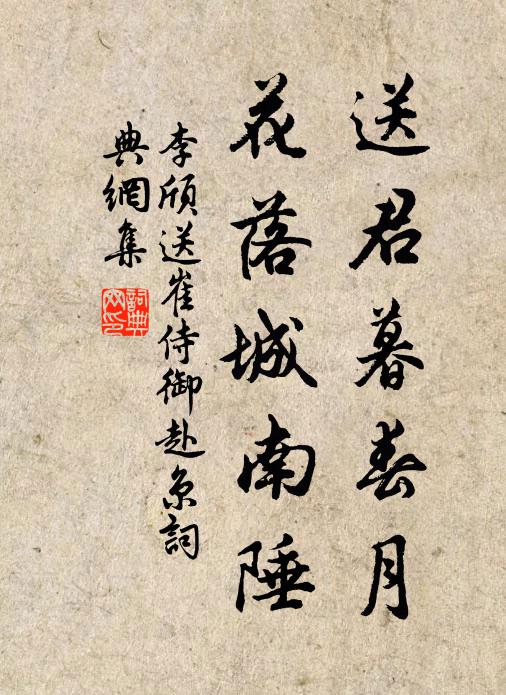 送君暮春月
花落城南陲
李頎送崔侍御赴京詞
典網集
詞典
网印